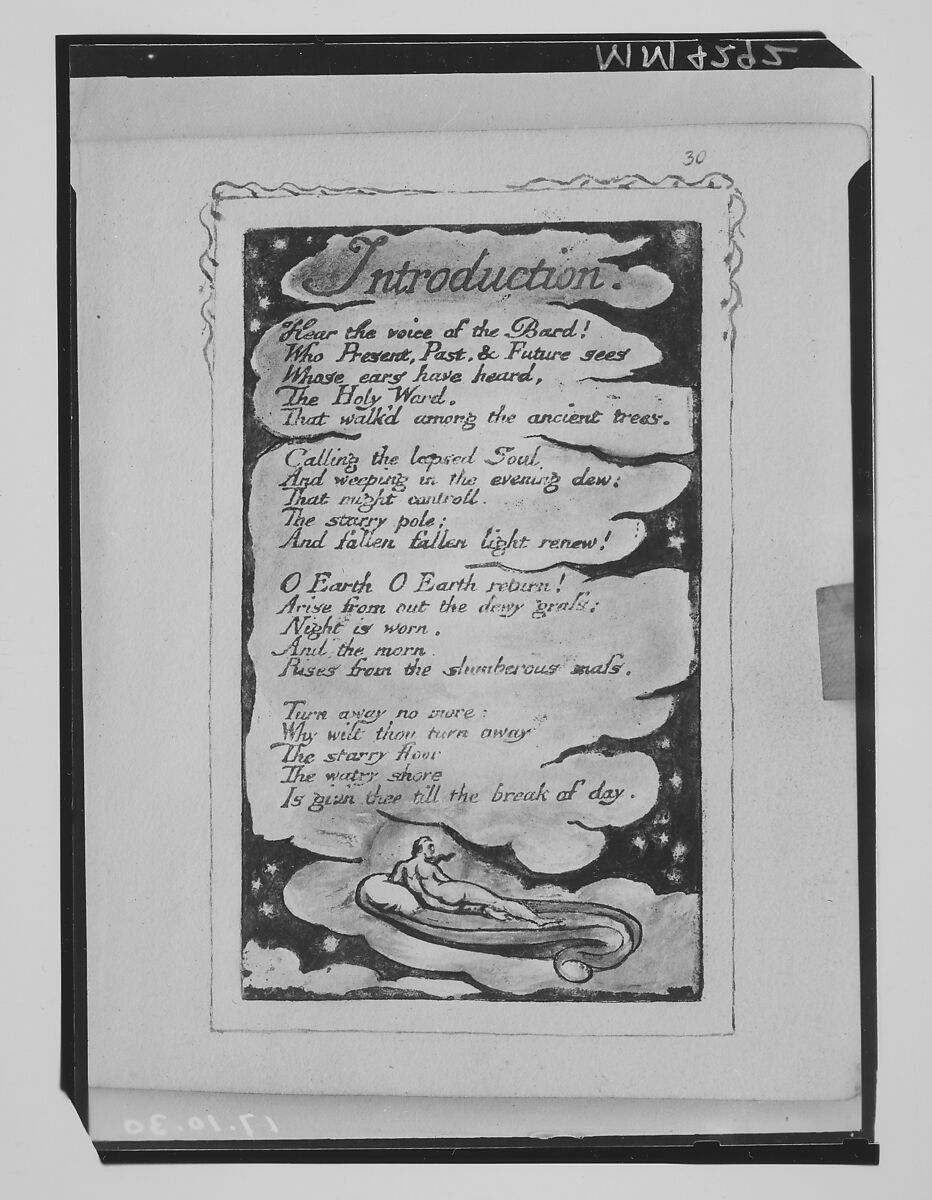 MM18292
30
Introduction.
Hear the voice of the Bard!
Who Present, Past, & Future sees
Whose ears have heard,
The Holy Word,
That walk'd among the ancient trees.
Calling the lapsed Soul
And weeping in the evening dew:
That might controll.
The starry pole;
And fallen fallen light renew!
O Earth O Earth return!
Arise from out the dewy grass;
Night is worn,
And the morn
Rises from the slumberous mass.
Turn away no more:
Why wilt thou turn away
The starry floor
The watry shore
Is giv'n thee till the break of day.
17.10.30